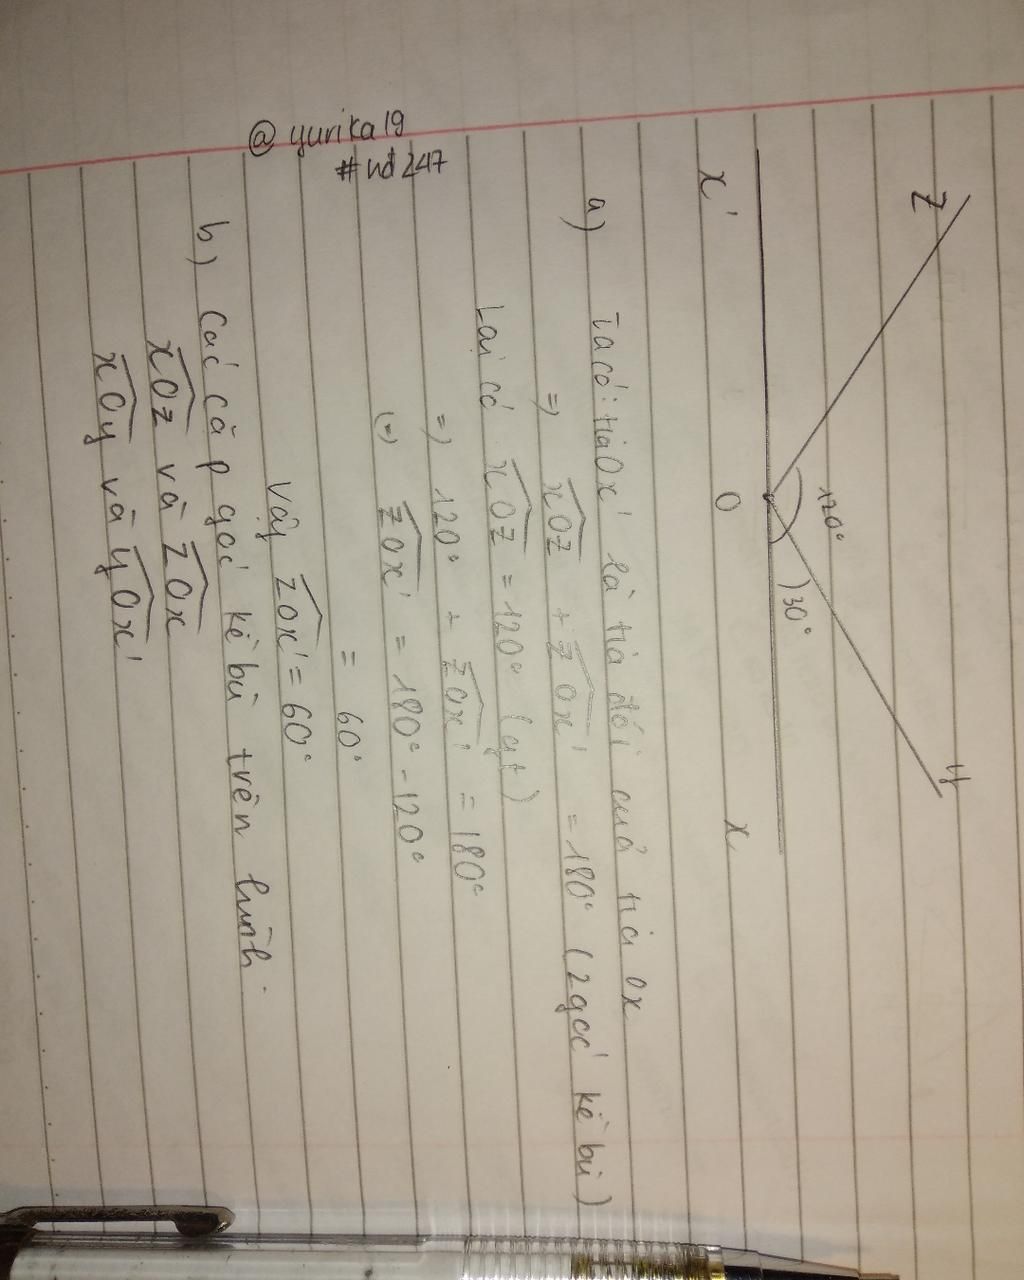 z
y
120°
)30°
x'
O
x
a) Ta có: tia Ox' là tia đối của tia Ox
=) xOz + zOx' = 180° (2 góc kề bù)
Lại có xOz = 120° (gt)
=) 120° + zOx' = 180°
(=) zOx' = 180° - 120°
= 60°
Vậy zOx' = 60°
b) Các cặp góc kề bù trên hình.
xOz và zOx
xOy và yOx'
@yurika19
#hd247